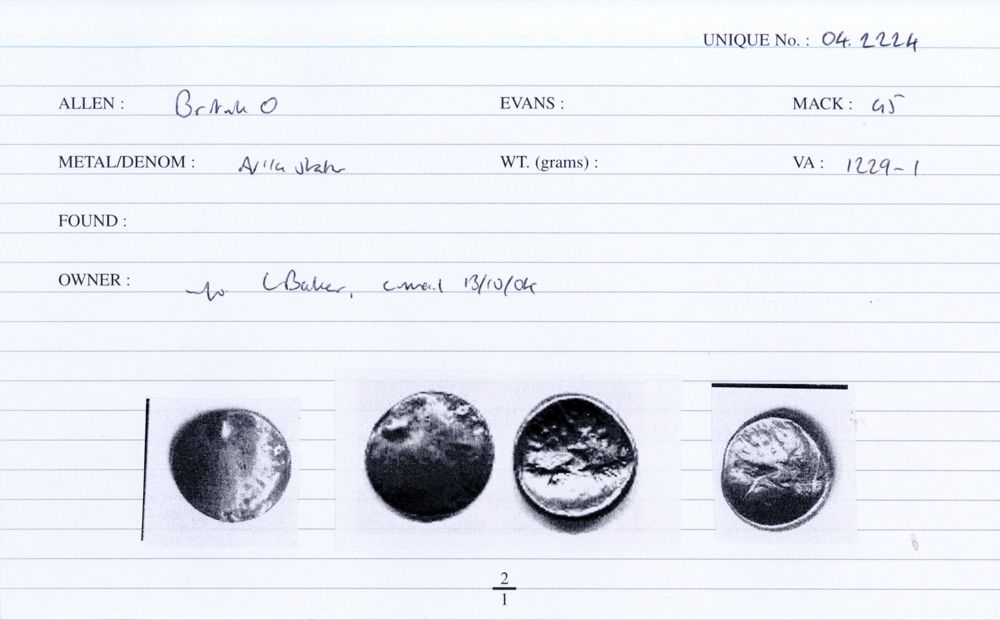 UNIQUE No. : 04.2224
ALLEN : British O EVANS : MACK : 45
METAL/DENOM : WT. (grams) : VA : 1229-1
FOUND :
OWNER : Baker, email 13/10/04
2
1